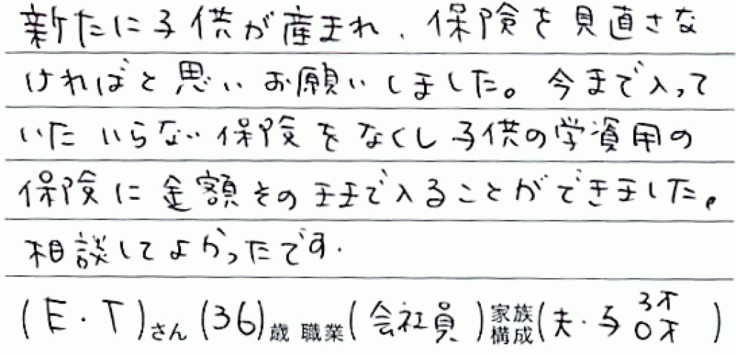 新たに子供が産まれ、保険を見直さな
ければと思いお願いしました。今まで入って
いた いらない保険をなくし子供の学資用の
保険に金額そのままで入ることができました。
相談してよかったです.
(E・T)さん (36)歳 職業(会社員)家族構成(夫・子 3才 0才)